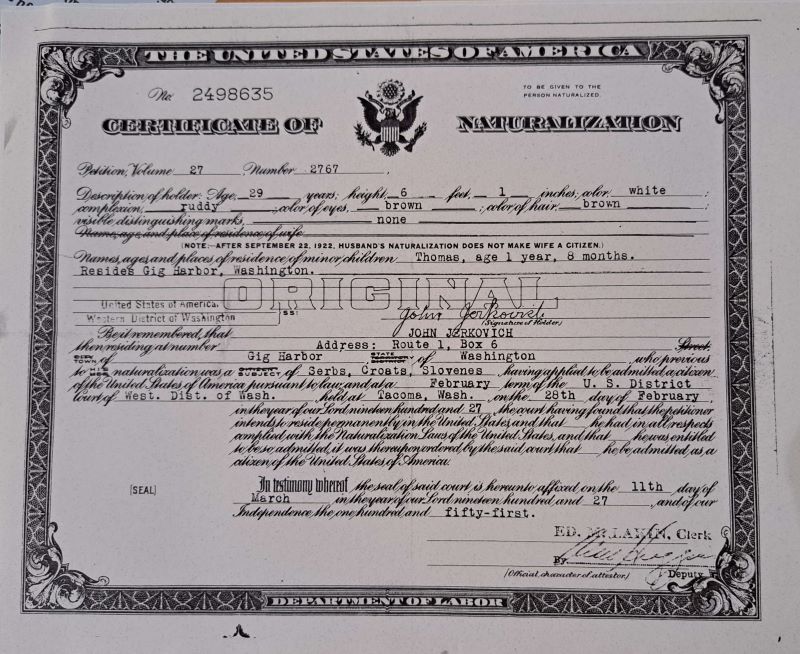 THE UNITED STATES OF AMERICA
No. 2498635
TO BE GIVEN TO THE
PERSON NATURALIZED.
CERTIFICATE OF NATURALIZATION
Petition, Volume 27 Number 2767
Description of holder: Age, 29 years; height, 6 feet, 1 inches; color, white ;
complexion, ruddy ; color of eyes, brown ; color of hair, brown ;
visible distinguishing marks, none
Name, age, and place of residence of wife
(NOTE:- AFTER SEPTEMBER 22, 1922, HUSBAND'S NATURALIZATION DOES NOT MAKE WIFE A CITIZEN.)
Names, ages and places of residence of minor children Thomas, age 1 year, 8 months.
Resides Gig Harbor, Washington.
ORIGINAL
United States of America,
Western District of Washington
SS:
John Jerkovich
(Signature of Holder)
Be it remembered, that JOHN JERKOVICH
then residing at number Address: Route 1, Box 6 Street,
CITY
TOWN of Gig Harbor STATE of Washington , who previous
to HIS naturalization was a SUBJECT of Serbs, Croats, Slovenes , having applied to be admitted a citizen
of the United States of America pursuant to law, and at a February term of the U. S. District
Court of West. Dist. of Wash. held at Tacoma, Wash. on the 28th day of February ,
in the year of our Lord nineteen hundred and 27 , the court having found that the petitioner
intends to reside permanently in the United States, and that he had in all respects
complied with the Naturalization Laws of the United States, and that he was entitled
to be so admitted, it was thereupon ordered by the said court that he be admitted as a
citizen of the United States of America.
[SEAL]
In testimony whereof the seal of said court is hereunto affixed on the 11th day of
March in the year of our Lord nineteen hundred and 27 , and of our
Independence the one hundred and fifty-first.
ED. M. LAKIN, Clerk
By
(Official character of attestor.) Deputy
DEPARTMENT OF LABOR